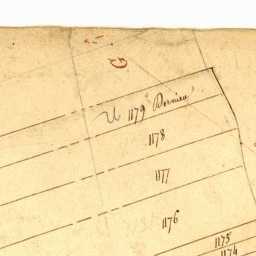 G
1179
1178
1177
1176
1175
1174